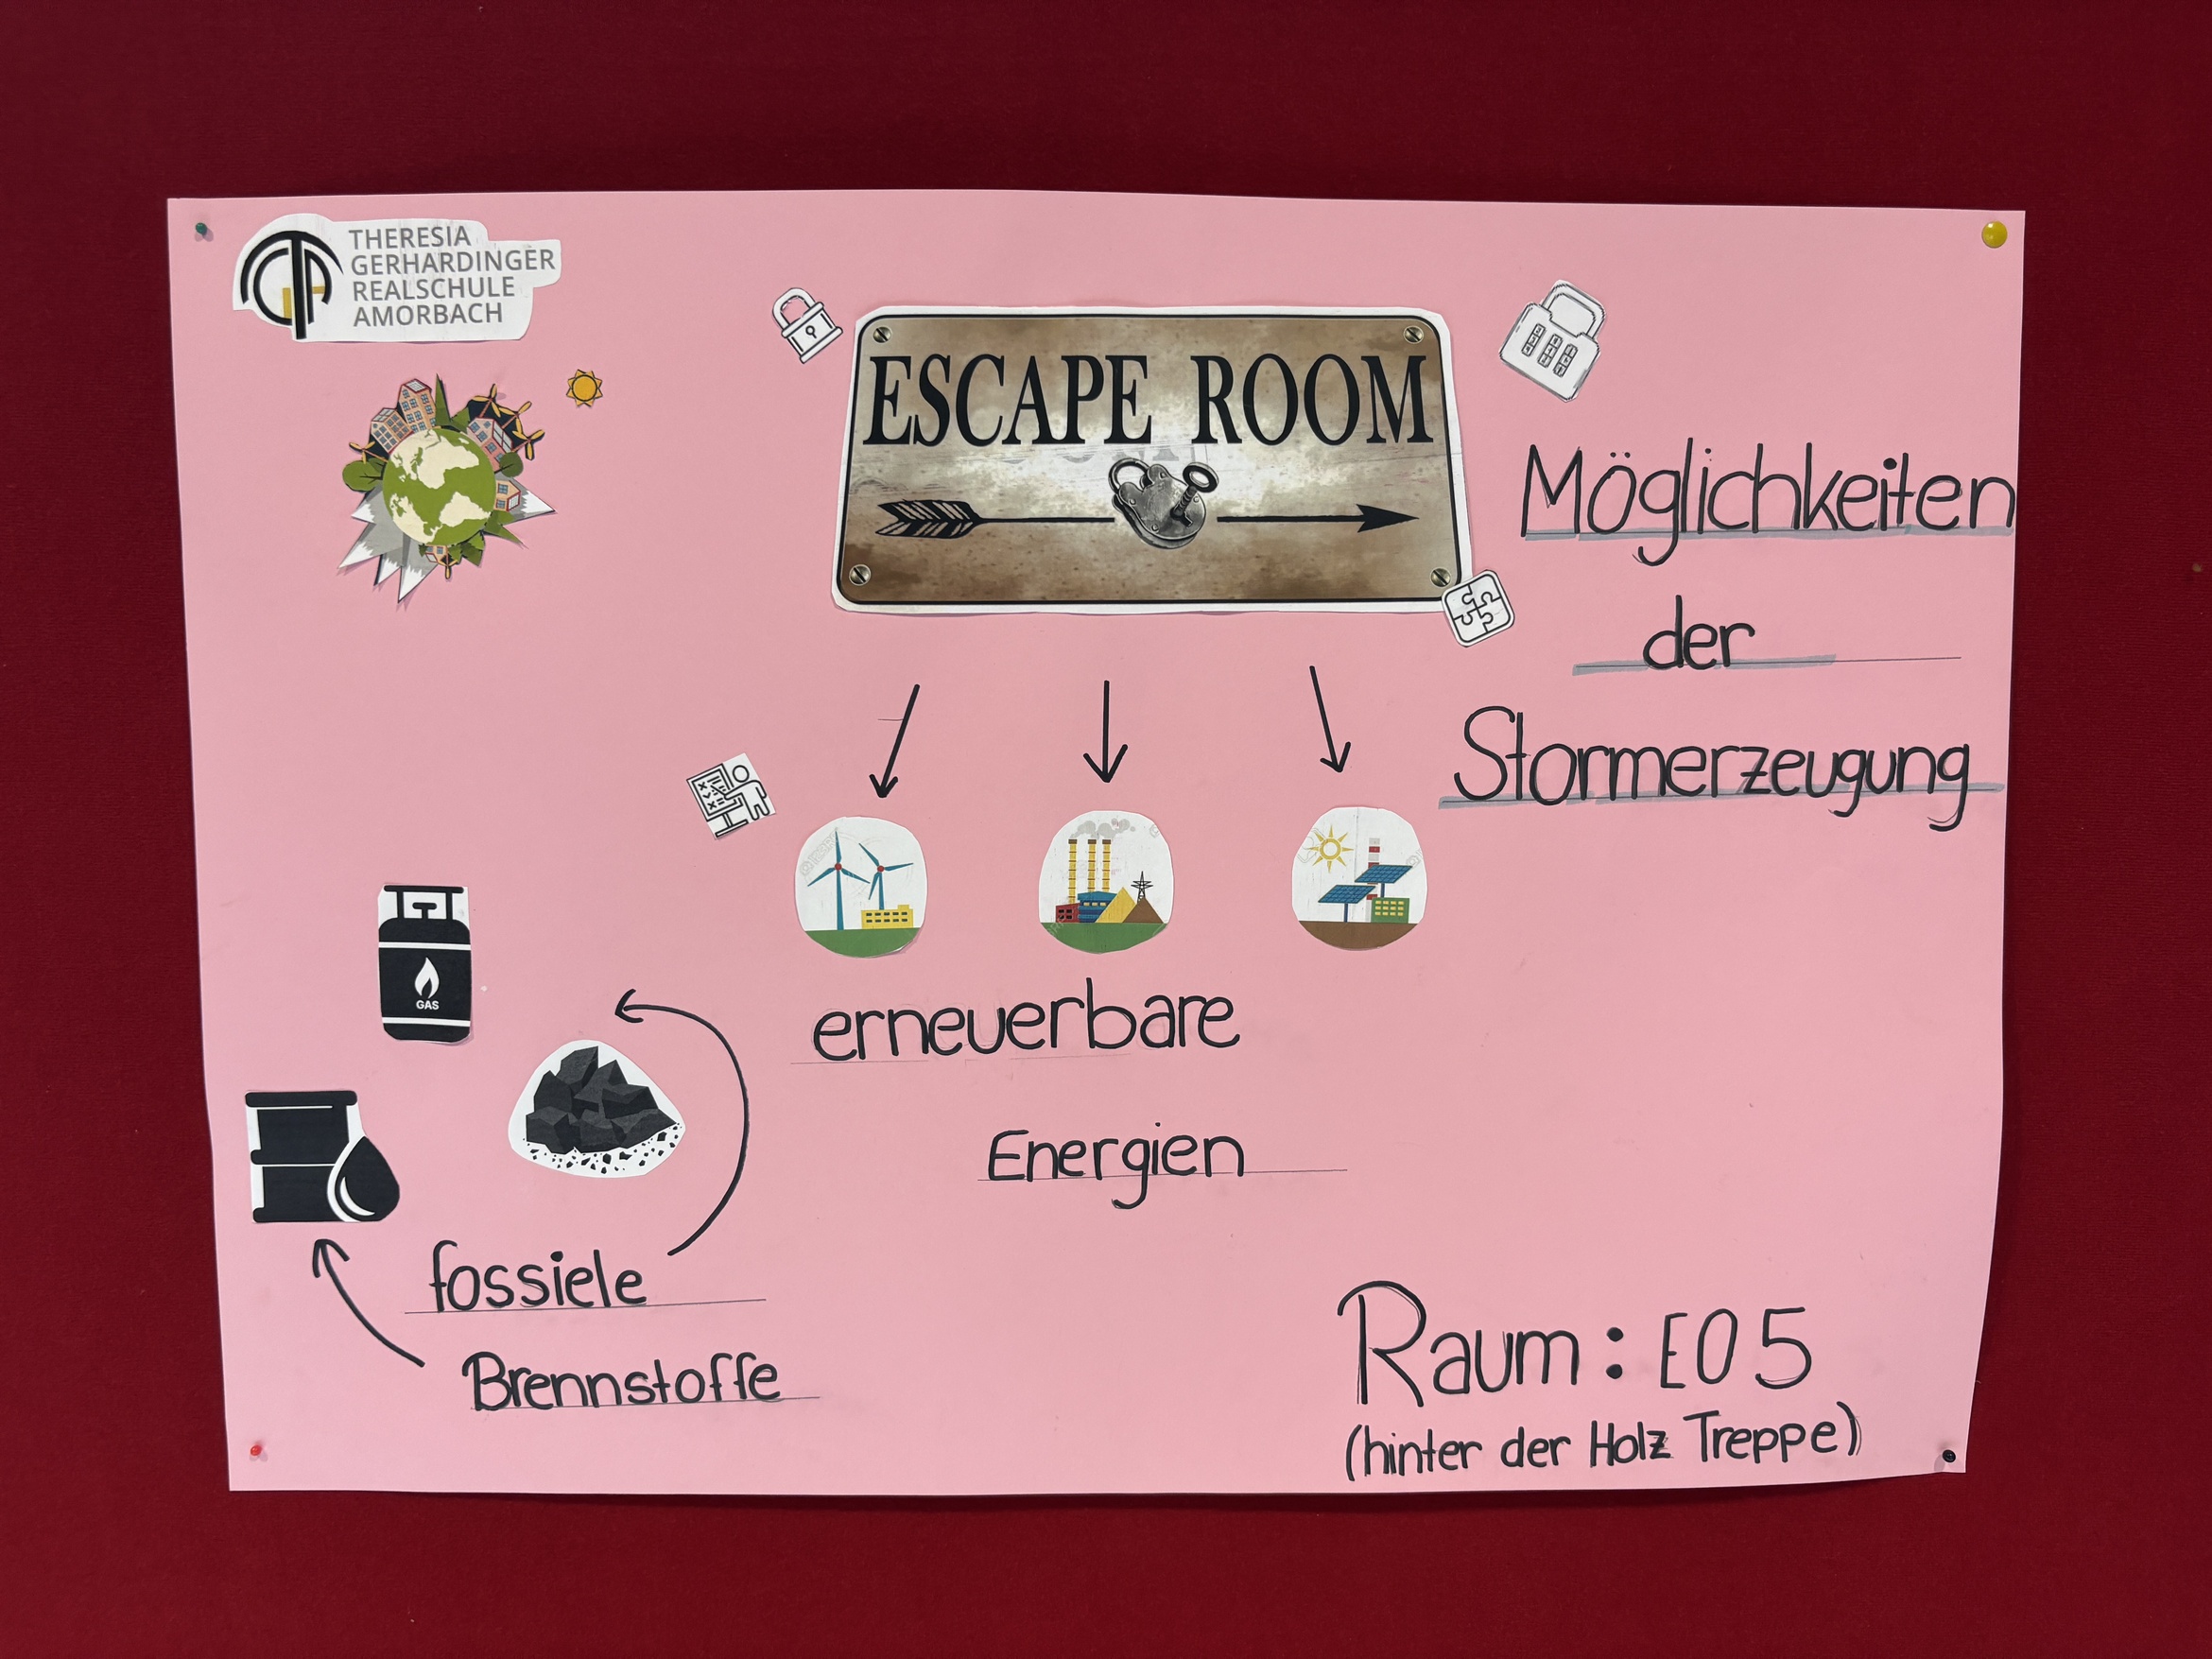 THERESIA
GERHARDINGER
REALSCHULE
AMORBACH
ESCAPE ROOM
Möglichkeiten
der
Stormerzeugung
GAS
erneuerbare
Energien
fossiele
Brennstoffe
Raum: E05
(hinter der Holz Treppe)